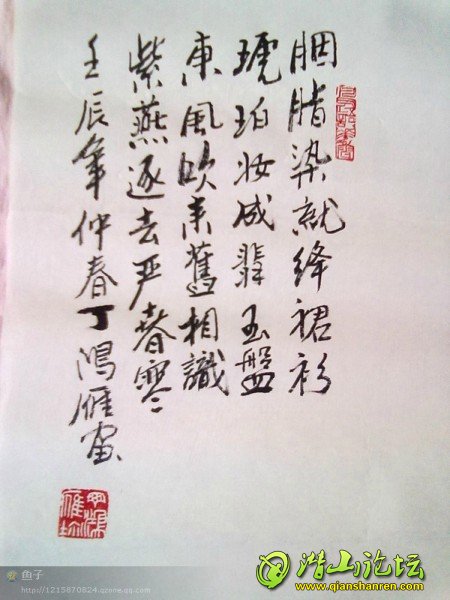 胭脂染就绛裙衫
琥珀妆成翡玉盤
東風吹来舊相識
紫燕逐去严春寒
壬辰年仲春丁鴻雁
鱼子
http://1215670824.qzone.qq.com
潜山论坛
www.qianshanren.com